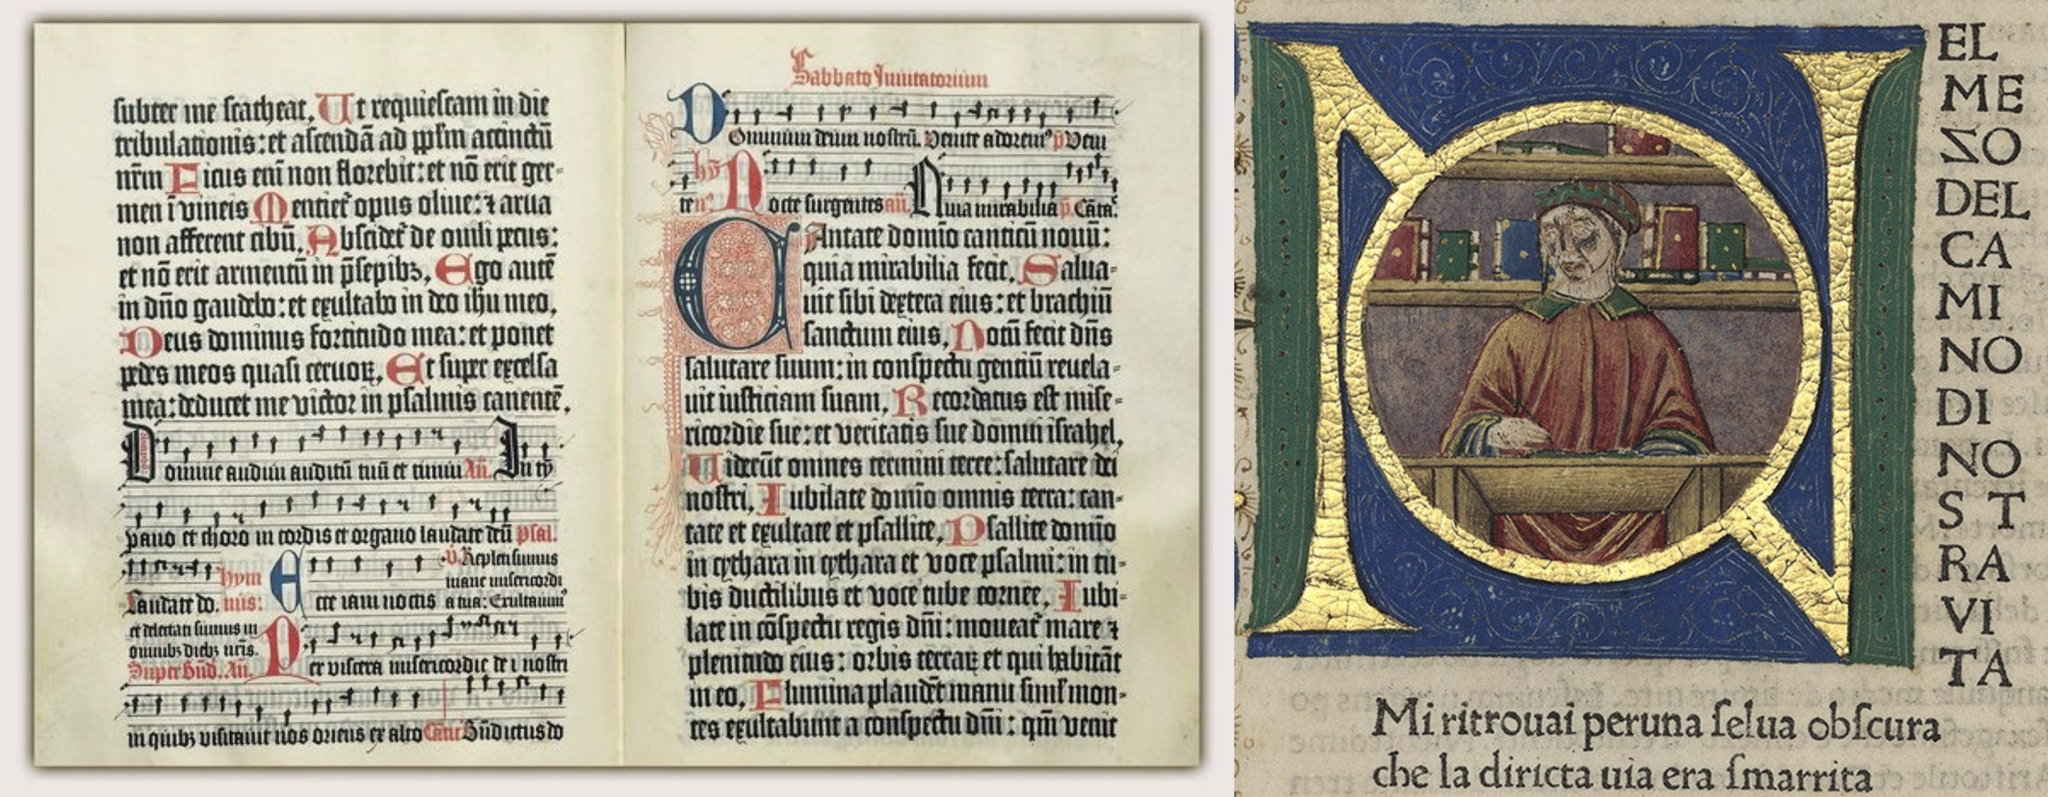 subter me scatheat, Ut requiescam in die
tribulationis: et ascendā ad ppłm accinctū
nr̄m Ficus eni non florebit: et nō erit ger-
men ī vineis Mentiet᷑ opus olive: ⁊ arua
non afferent cibū, Abscidet᷑ de ouili pecus:
et nō erit armentū in p̄sepibꝫ, Ego autē
in dn̄o gaudebo: et exultabo in deo ihu meo,
Deus dominus fortitudo mea: et ponet
pedes meos quasi ceruoꝝ, Et super excelsa
mea: deducet me victor in psalmis canentē,
Domine audiui auditū tuū et timui An̄. In ty
pano et choro in cordis et organo laudate deū Psal.
Laudate do. hym nus: Ecce iam noctis
V̄. Repleti sumus
mane misericordi
a tua: Exultauim᷒
et delectati sumus in
omnibꝫ diebꝫ nr̄is.
Super Bn̄d. An̄. Per viscera misericordie dei nostri
in quibꝫ visitauit nos oriens ex alto Cant᷑ Bn̄dictus do
Sabbato Inuitatorium
Dominum deum nostrū. Venite adorem᷒ p̄ Veni
te hy n᷒. Nocte surgentes an̄ Quia mirabilia p̄. Cāta.
CAntate domīo canticū nouū:
quia mirabilia fecit, Salua-
uit sibi dextera eius: et brachiū
sanctum eius, Notū fecit dn̄s
salutare suum: in conspectu gentiū reuela-
uit iusticiam suam, Recordatus est mise-
ricordie sue: et veritatis sue domui israhel,
Uiderūt omnes termini terre: salutare dei
nostri, Iubilate domīo omnis terra: can-
tate et exultate et psallite, Psallite domīo
in cythara in cythara et voce psalmi: in tu-
bis ductilibus et voce tube cornee, Iubi-
late in cōspectu regis dn̄i: moueat᷑ mare ⁊
plenitudo eius: orbis terraꝝ et qui habitāt
in eo, Flumina plaudēt manu simł mon-
tes exultabunt a conspectu dn̄i: qm̄ venit
N
EL
ME
ZO
DEL
CA
MI
NO
DI
NO
S T
RA
VI
TA
Mi ritrouai peruna ſelua obſcura
che la diricta uia era ſmarrita